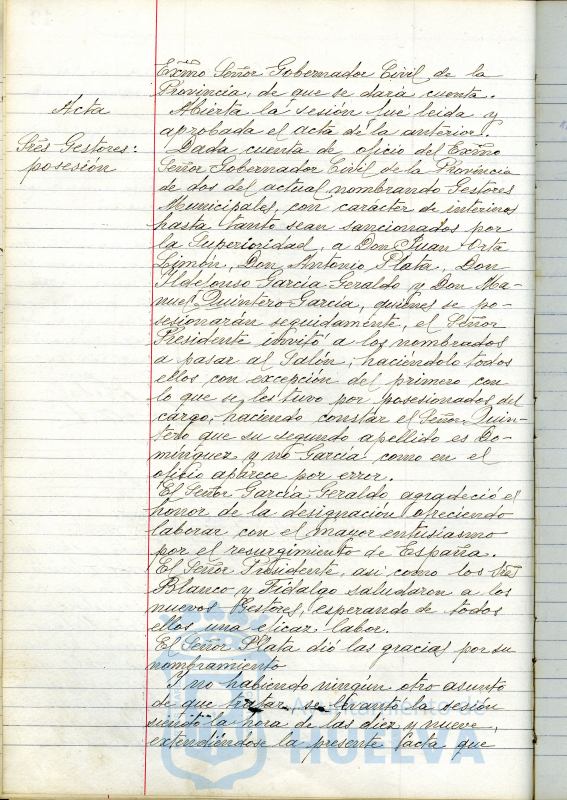 Excmo Señor Gobernador Civil de la
Provincia, de que se dará cuenta.
Acta
Abierta la sesión fué leida y
aprobada el acta de la anterior.
Tres Gestores:
posesión
Dada cuenta de oficio del Excmo
Señor Gobernador Civil de la Provincia
de dos del actual nombrando Gestores
Municipales, con carácter de interinos
hasta tanto sean sancionados por
la Superioridad, a Don Juan Orta
Limón, Don Antonio Plata, Don
Ildefonso García Geraldo y Don Ma-
nuel Quintero García, quienes se po-
sesionarán seguidamente, el Señor
Presidente invitó a los nombrados
a pasar al Salón, haciéndolo todos
ellos con excepción del primero con
lo que se les tuvo por posesionados del
cargo, haciendo constar el Señor Quin-
tero que su segundo apellido es Do-
minguez y no García como en el
oficio aparece por error.
El Señor García Geraldo agradeció el
honor de la designación ofreciendo
laborar con el mayor entusiasmo
por el resurgimiento de España.
El Señor Presidente, asi como los Sres
Blanco y Fidalgo saludaron a los
nuevos Gestores, esperando de todos
ellos una eficaz labor.
El Señor Plata dió las gracias por su
nombramiento
Y no habiendo ningún otro asunto
de que tratar, se levantó la sesión
siendo la hora de las diez y nueve,
extendiéndose la presente acta que
HUELVA